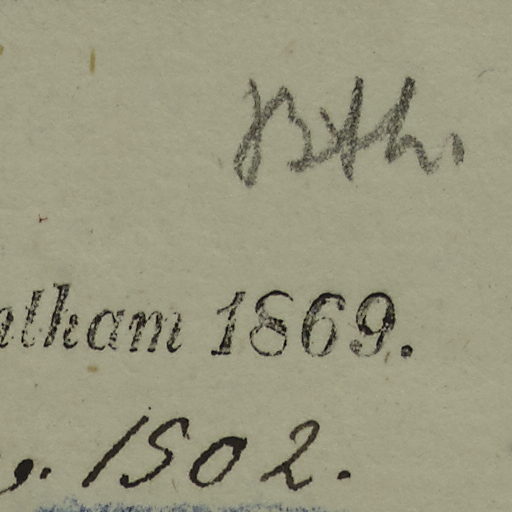 Bth.
ntham 1869.
1502.